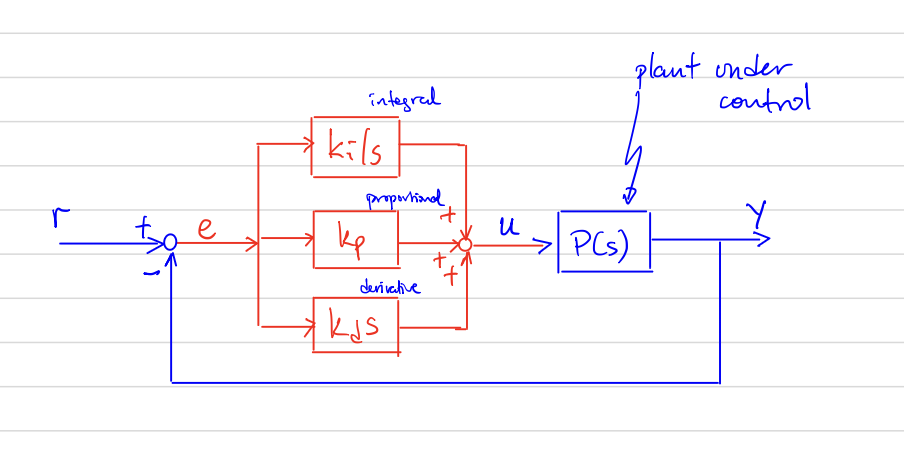 plant under
control
integral
ki/s
proportional
r
+
e
kp
+
u
P(s)
y
-
+
+
derivative
kds